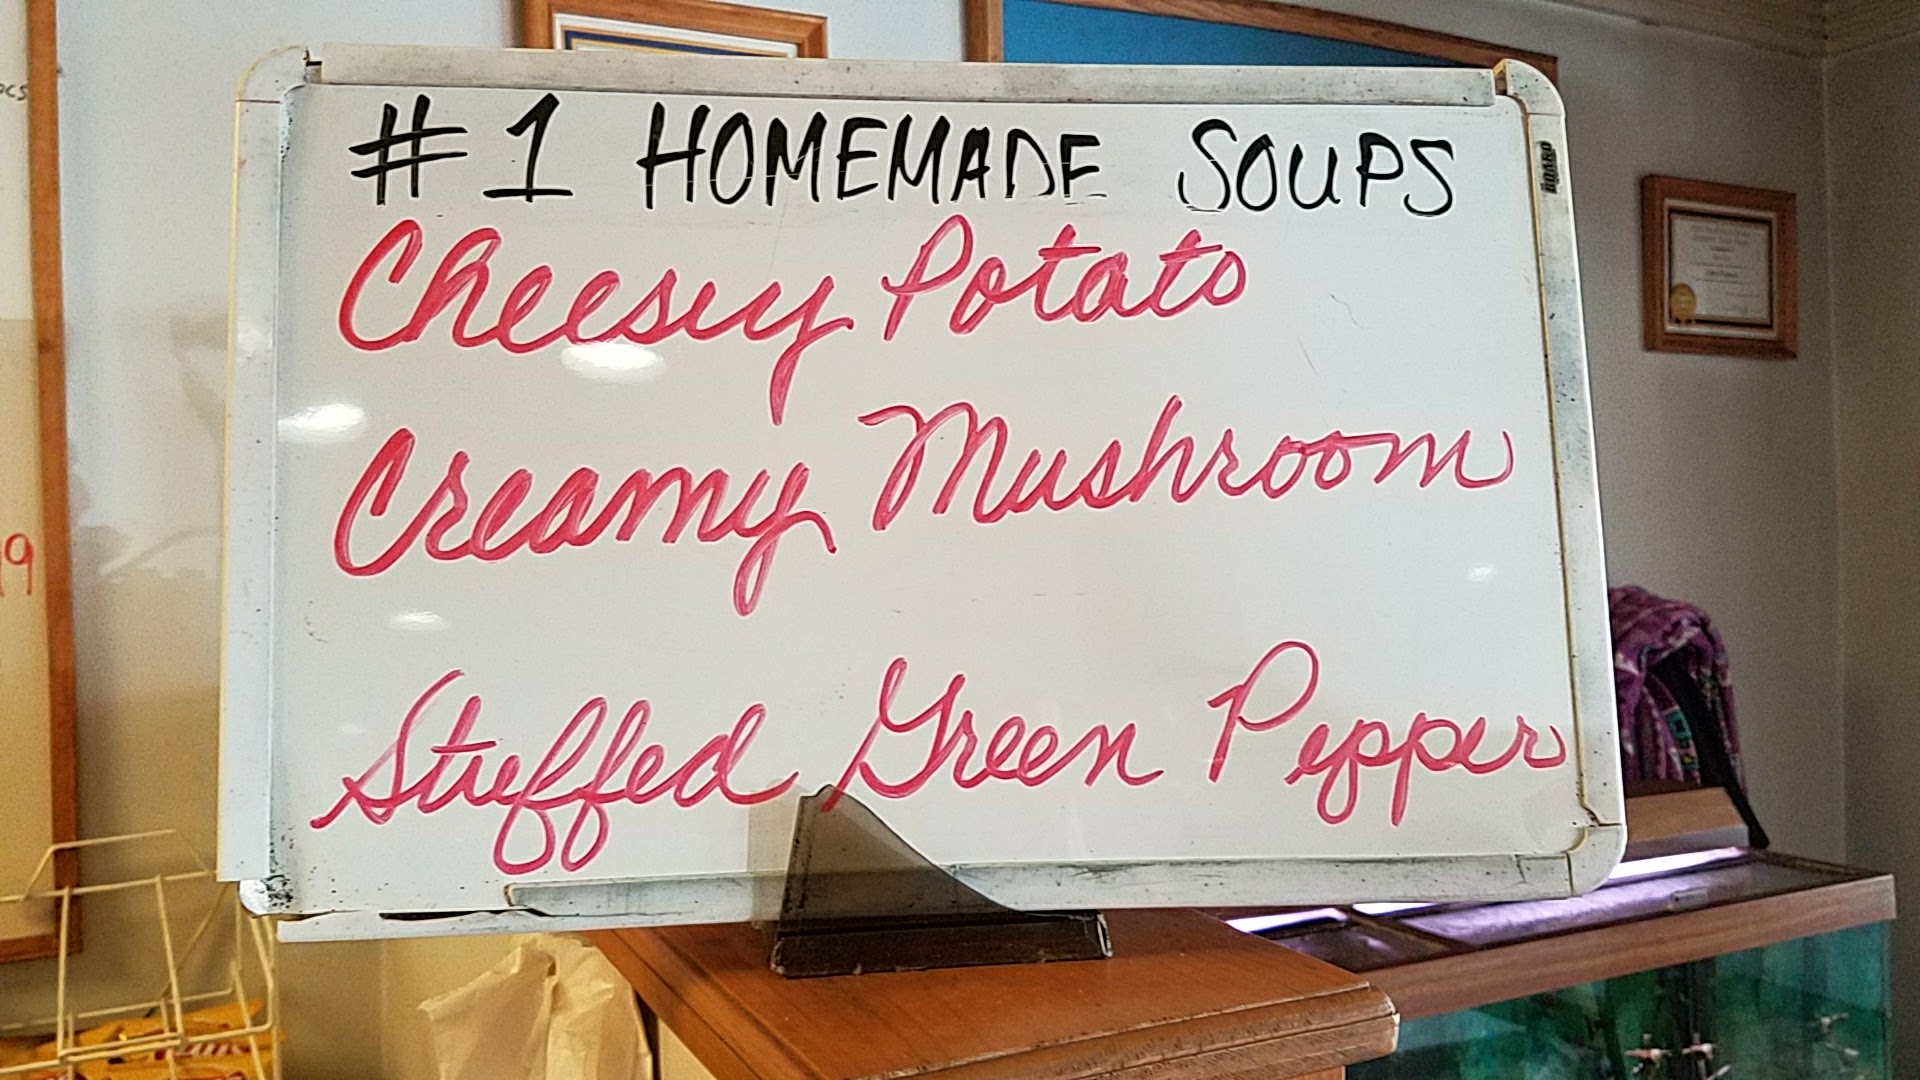 #1 HOMEMADE SOUPS
Cheesy Potato
Creamy Mushroom
Stuffed Green Pepper